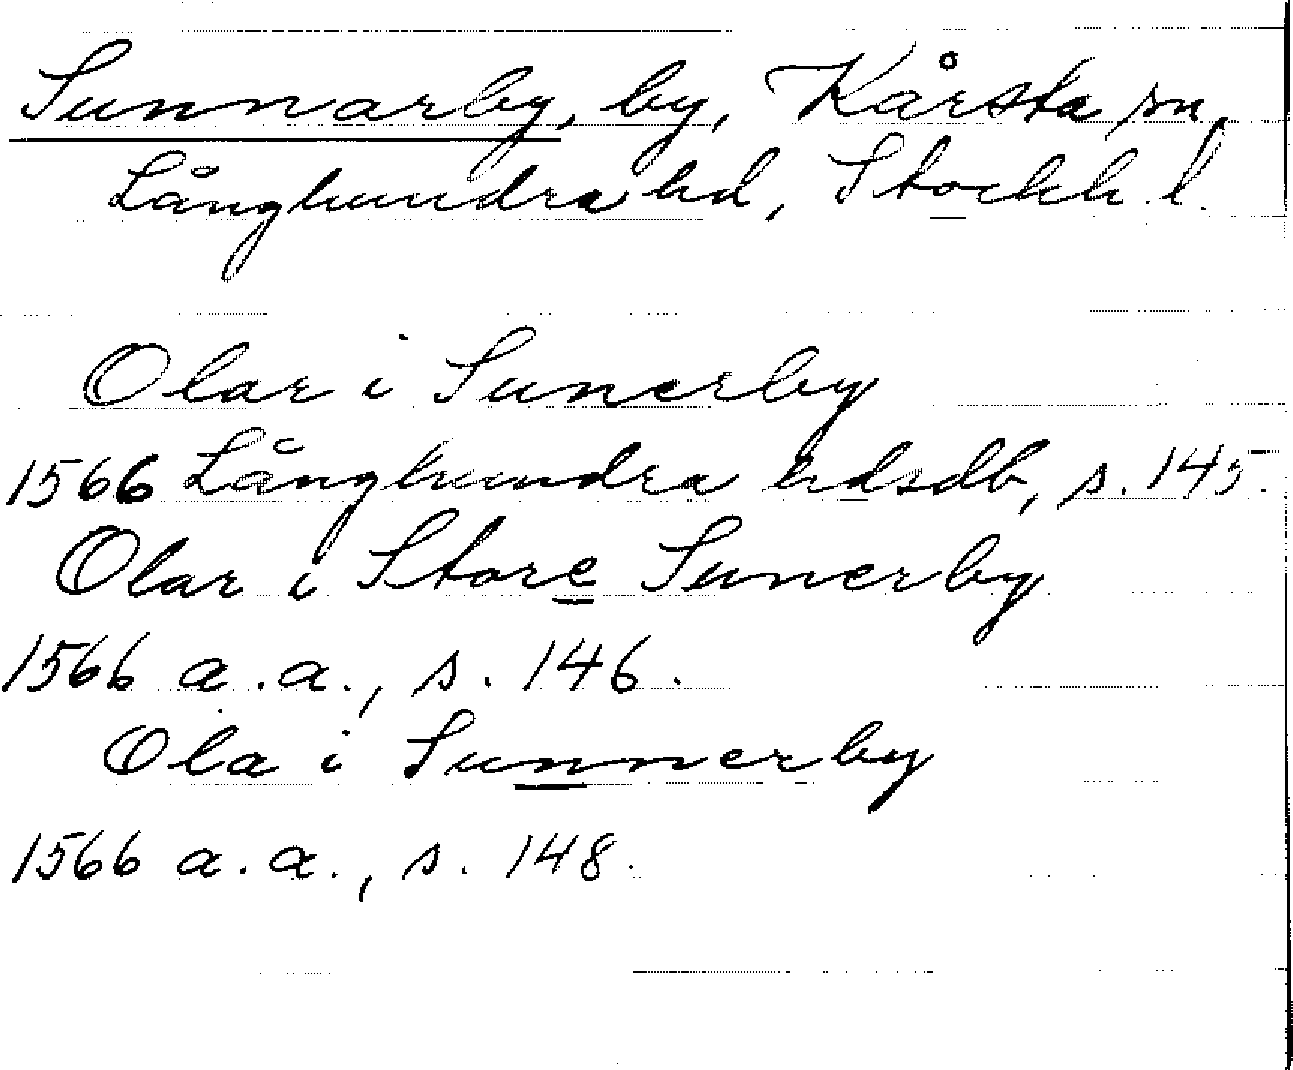 Sunnarby, by, Kårsta sn,
Långhundra hd, Stockh. l.
Olar i Sunerby
1566 Långhundra hdsdb, s. 145.
Olar i Store Sunerby
1566 a.a., s. 146.
Ola i Sunnerby
1566 a.a., s. 148.